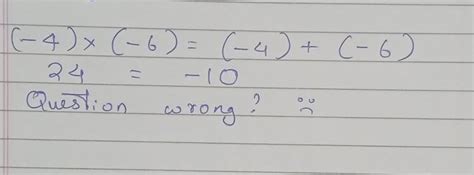 (-4) × (-6) = (-4) + (-6)
24 = -10
Question wrong? ☹